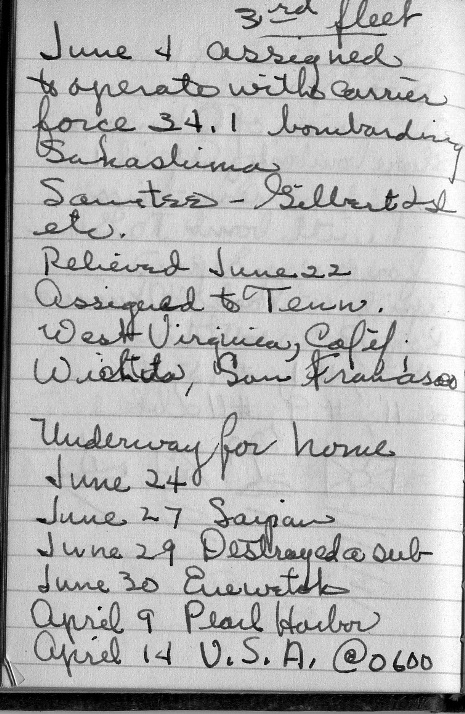 3rd fleet
June 4 assigned
to operate with carrier
force 34.1 bombarding
Sakashima
- Gilbert Isl
etc.
Relieved June 22
Assigned to Tenn.
West Virginia, Calif.
Wichita, San Francisco
Underway for home
June 24
June 27 Saipan
June 29 Destroyed a sub
June 30 Enewetok
April 9 Pearl Harbor
April 14 U.S.A. @0600